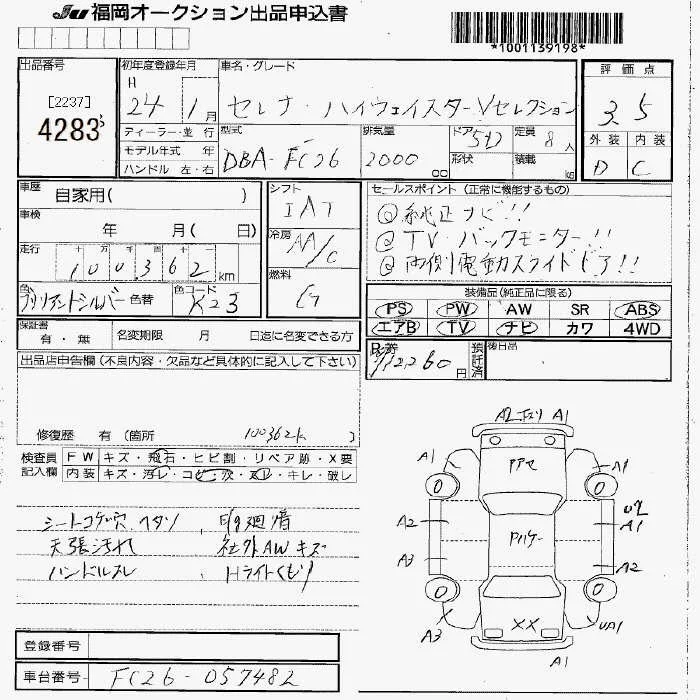 JU 福岡オークション出品申込書
*1001139198*
出品番号 [2237] 4283
初年度登録年月 H 24 1月
車名・グレード セレナ・ハイウェイスターVセレクション
評価点 3.5
ディーラー・並行
モデル年式 年
ハンドル 左・右
型式 DBA-FC26
排気量 2000 cc
ドア 5D
形状
定員 8人
積載 kg
外装 D 内装 C
車歴 自家用( )
車検 年 月( 日)
走行 十 万 千 百 十 100,362 km
色 ブリリアントシルバー 色替 色コード K23
シフト IAT
冷房 AA/C
燃料 G
セールスポイント(正常に機能するもの)
◎純正ナビ!!
◎TV・バックモニター!!
◎両側電動スライドドア!!
装備品(純正品に限る)
PS PW AW SR ABS
エアB TV ナビ カワ 4WD
保証書 有・無 名変期限 月 日迄に名変できる方
R券 円 預託済 後日品
出品店申告欄(不良内容・欠品など具体的に記入して下さい)
修復歴 有 (箇所 100362k )
検査員記入欄
FW キズ・飛石・ヒビ割・リペア跡・X要
内装 キズ・汚レ・コゲ・穴・スレ・キレ・破レ
シートコゲ穴 ヘタリ
天張汚れ 社外AWキズ
ハンドルスレ Hライトくもり
A2 A1
A1 A1
アアセ
0 0
A2 U2 A1
Pハゲー
A3 A2
0 0
A3 XX UA1
A1
登録番号
車台番号 FC26-057482